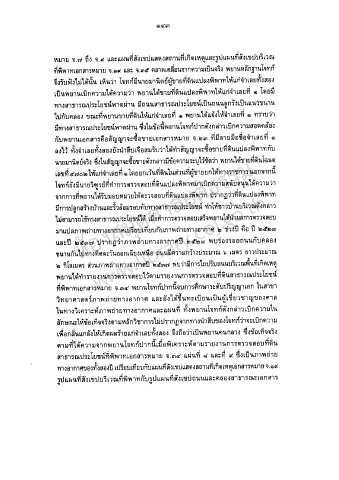 ๑๔๓
หมาย จ.๗ ถึง จ.๙ และแผนที่สังเขปแสดงสถานที่เกิดเหตุและรูปแผนที่สังเขปบริเวณ
ที่พิพาทเอกสารหมาย จ.๑๙ และ จ.๓๕ คลาดเคลื่อนจากความเป็นจริง พยานหลักฐานโจทก์
จึงรับฟังไม่ได้นั้น เห็นว่า โจทก์มีนายมานิตย์ผู้ขายที่ดินแปลงพิพาทให้แก่จำเลยทั้งสอง
เป็นพยานเบิกความได้ความว่า พยานได้ขายที่ดินแปลงพิพาทให้แก่จำเลยที่ ๑ โดยมี
ทางสาธารณประโยชน์พาดผ่าน มีถนนสาธารณประโยชน์เป็นถนนลูกรังเป็นแนวขนาน
ไปกับคลอง ขณะที่พยานขายให้แก่จำเลยที่ ๑ พยานได้แจ้งให้จำเลยที่ ๑ ทราบว่า
มีทางสาธารณประโยชน์พาดผ่าน ซึ่งในข้อนี้พยานโจทก์ปากดังกล่าวเบิกความสอดคล้อง
กับพยานเอกสารคือสัญญาจะซื้อขายเอกสารหมาย จ.๒๓ ที่มีลายมือชื่อจำเลยที่ ๑
ลงไว้ ทั้งจำเลยทั้งสองก็นำสืบเจือสมรับว่าได้ทำสัญญาจะซื้อขายที่ดินแปลงพิพาทกับ
นายมานิตย์จริง ซึ่งในสัญญาจะซื้อขายดังกล่าวมีข้อความระบุไว้ชัดว่า พยานได้ขายที่ดินโฉนด
ให้จำเลยที่ ๑ โดยยกเว้นที่ดินในส่วนที่ผู้ขายยกให้ทางราชการนอกจากนี้
โจทก์ยังมี
จากการที่พยานได้รับมอบหมายให้ตรวจสอบที่ดินแปลงพิพาท ปรากฏว่าที่ดินแปลงพิพาท
มีการปลูกสร้างบ้านและรั้วล้อมรอบทับทางสาธารณประโยชน์ ทำให้ชาวบ้านบริเวณดังกล่าว
ไม่สามารถใช้ทางสาธารณประโยชน์ได้ เมื่อทำการตรวจสอบเสร็จพยานได้นำผลการตรวจสอบ
มาแปลภาพถ่ายทางอากาศเปรียบเทียบกับภาพถ่ายทางอากาศ ๒ ช่วงปี คือ ปี
และปี ปรากฏว่าภาพถ่ายทางอากาศปี พบร่องรอยถนนกับคลอง
ขนานกันไปทางทิศตะวันออกเฉียงเหนือ ถนนมีความกว้างประมาณ ๖ เมตร ยาวประมาณ
๒ กิโลเมตร ส่วนภาพถ่ายทางอากาศปี พบว่ามีการไถปรับถนนบริเวณพื้นที่เกิดเหตุ
พยานได้ทำรายงานการตรวจสอบไว้ตามรายงานการตรวจสอบที่ดินสาธารณประโยชน์
ที่พิพาทเอกสารหมาย จ.๓๔ พยานโจทก์ปากนี้จบการศึกษาระดับปริญญาเอก ในสาขา
วิทยาศาสตร์ภาพถ่ายทางอากาศ และยังได้ขึ้นทะเบียนเป็นผู้เชี่ยวชาญของศาล
ในทางวิเคราะห์ภาพถ่ายทางอากาศและแผนที่ ทั้งพยานโจทก์ดังกล่าวเบิกความใน
ลักษณะให้ข้อเท็จจริงตามหลักวิชาการไม่ปรากฏจากทางนำสืบของโจทก์ว่าจะเบิกความ
เพื่อกลั่นแกล้งให้เกิดผลร้ายแก่จำเลยทั้งสอง จึงถือว่าเป็นพยานคนกลาง ซึ่งข้อเท็จจริง
ตามที่ได้ความจากพยานโจทก์ปากนี้เมื่อพิเคราะห์ตามรายงานการตรวจสอบที่ดิน
สาธารณประโยชน์ที่พิพาทเอกสารหมาย จ.๓๔ แผ่นที่ ๘ และที่ ๙ ซึ่งเป็นภาพถ่าย
ทางอากาศของทั้งสองปี เปรียบเทียบกับแผนที่สังเขปแสดงสถานที่เกิดเหตุเอกสารหมาย จ.๑๙
รูปแผนที่สังเขปบริเวณที่พิพาทกับรูปแผนที่สังเขปถนนและคลองสาธารณะเอกสาร